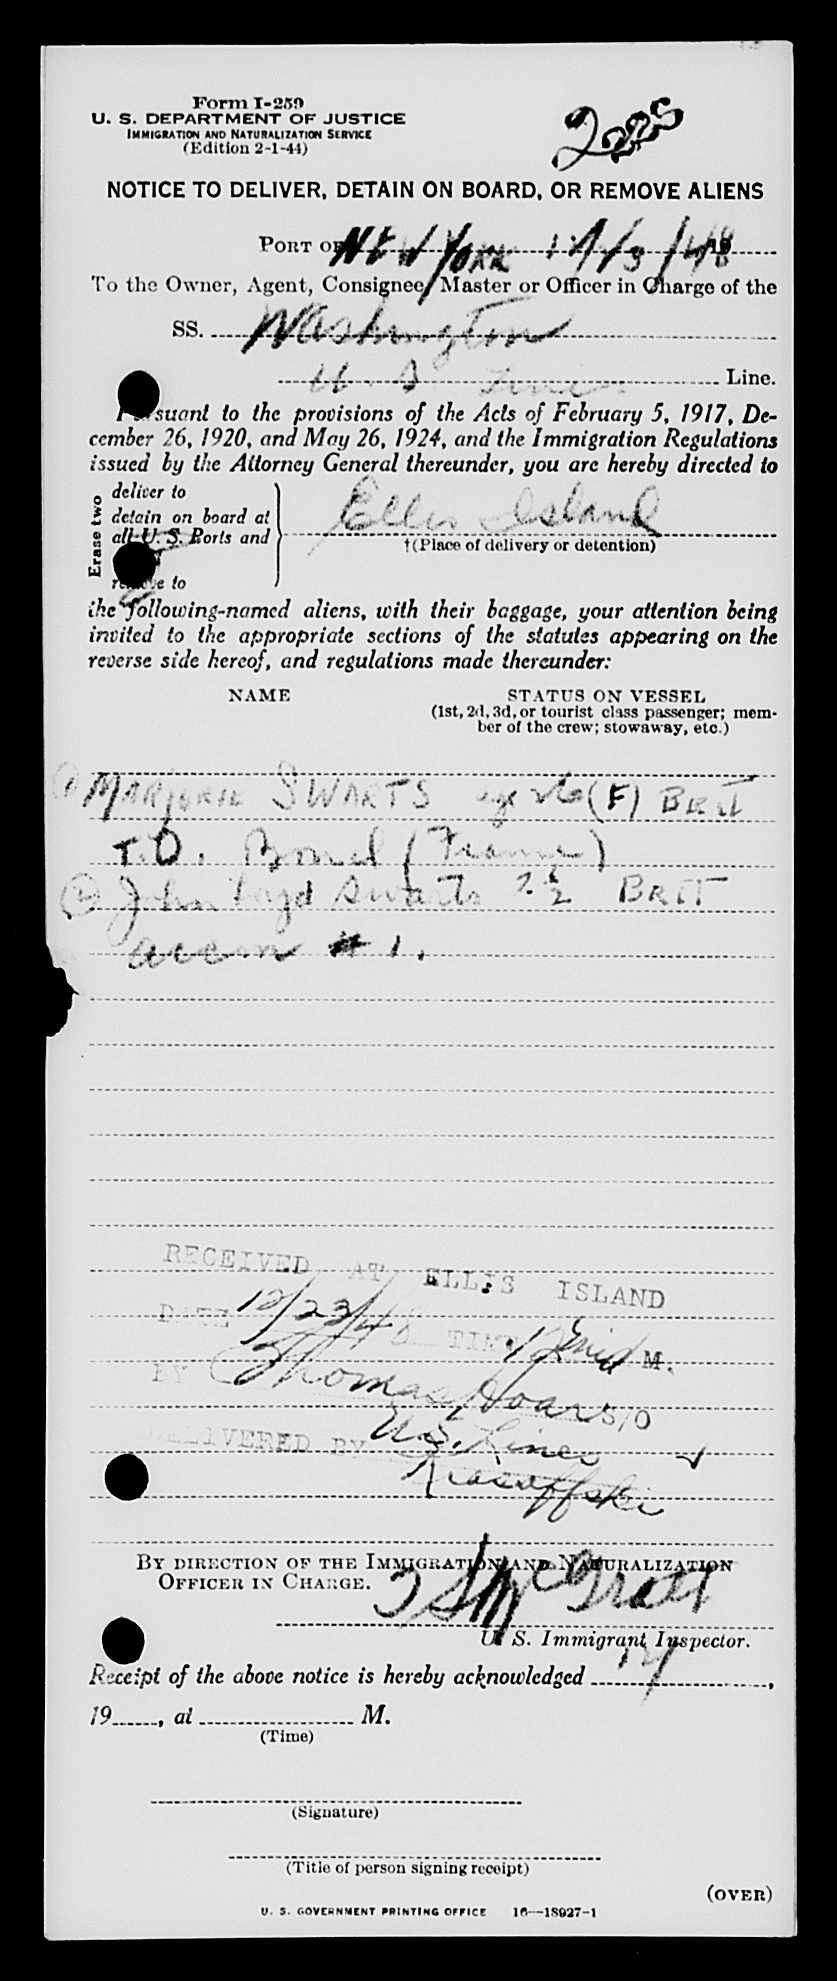 Form I-259
U. S. DEPARTMENT OF JUSTICE
IMMIGRATION AND NATURALIZATION SERVICE
(Edition 2-1-44)
NOTICE TO DELIVER, DETAIN ON BOARD, OR REMOVE ALIENS
PORT OF NEW YORK
To the Owner, Agent, Consignee, Master or Officer in Charge of the
SS. Washington
U. S. Lines Line.
Pursuant to the provisions of the Acts of February 5, 1917, De-
cember 26, 1920, and May 26, 1924, and the Immigration Regulations
issued by the Attorney General thereunder, you are hereby directed to
Erase two
deliver to
detain on board at
all U. S. Ports and
remove to
Ellis Island
†(Place of delivery or detention)
the following-named aliens, with their baggage, your attention being
invited to the appropriate sections of the statutes appearing on the
reverse side hereof, and regulations made thereunder:
NAME STATUS ON VESSEL
(1st, 2d, 3d, or tourist class passenger; mem-
ber of the crew; stowaway, etc.)
① MARJORIE SWARTS age 26 (F) BRIT
T.D. Bond (France)
② John Loyd Swarts 2½ BRIT
accom # 1.
RECEIVED AT ELLIS ISLAND
DATE 12/23/48 TIME 12 Mid M.
BY Thomas Hoar S/O
DELIVERED BY U.S. Lines
BY DIRECTION OF THE IMMIGRATION AND NATURALIZATION
OFFICER IN CHARGE.
McGrath
U. S. Immigrant Inspector.
Receipt of the above notice is hereby acknowledged ,
19 , at M.
(Time)
(Signature)
(Title of person signing receipt)
(OVER)
U. S. GOVERNMENT PRINTING OFFICE 16—18927-1